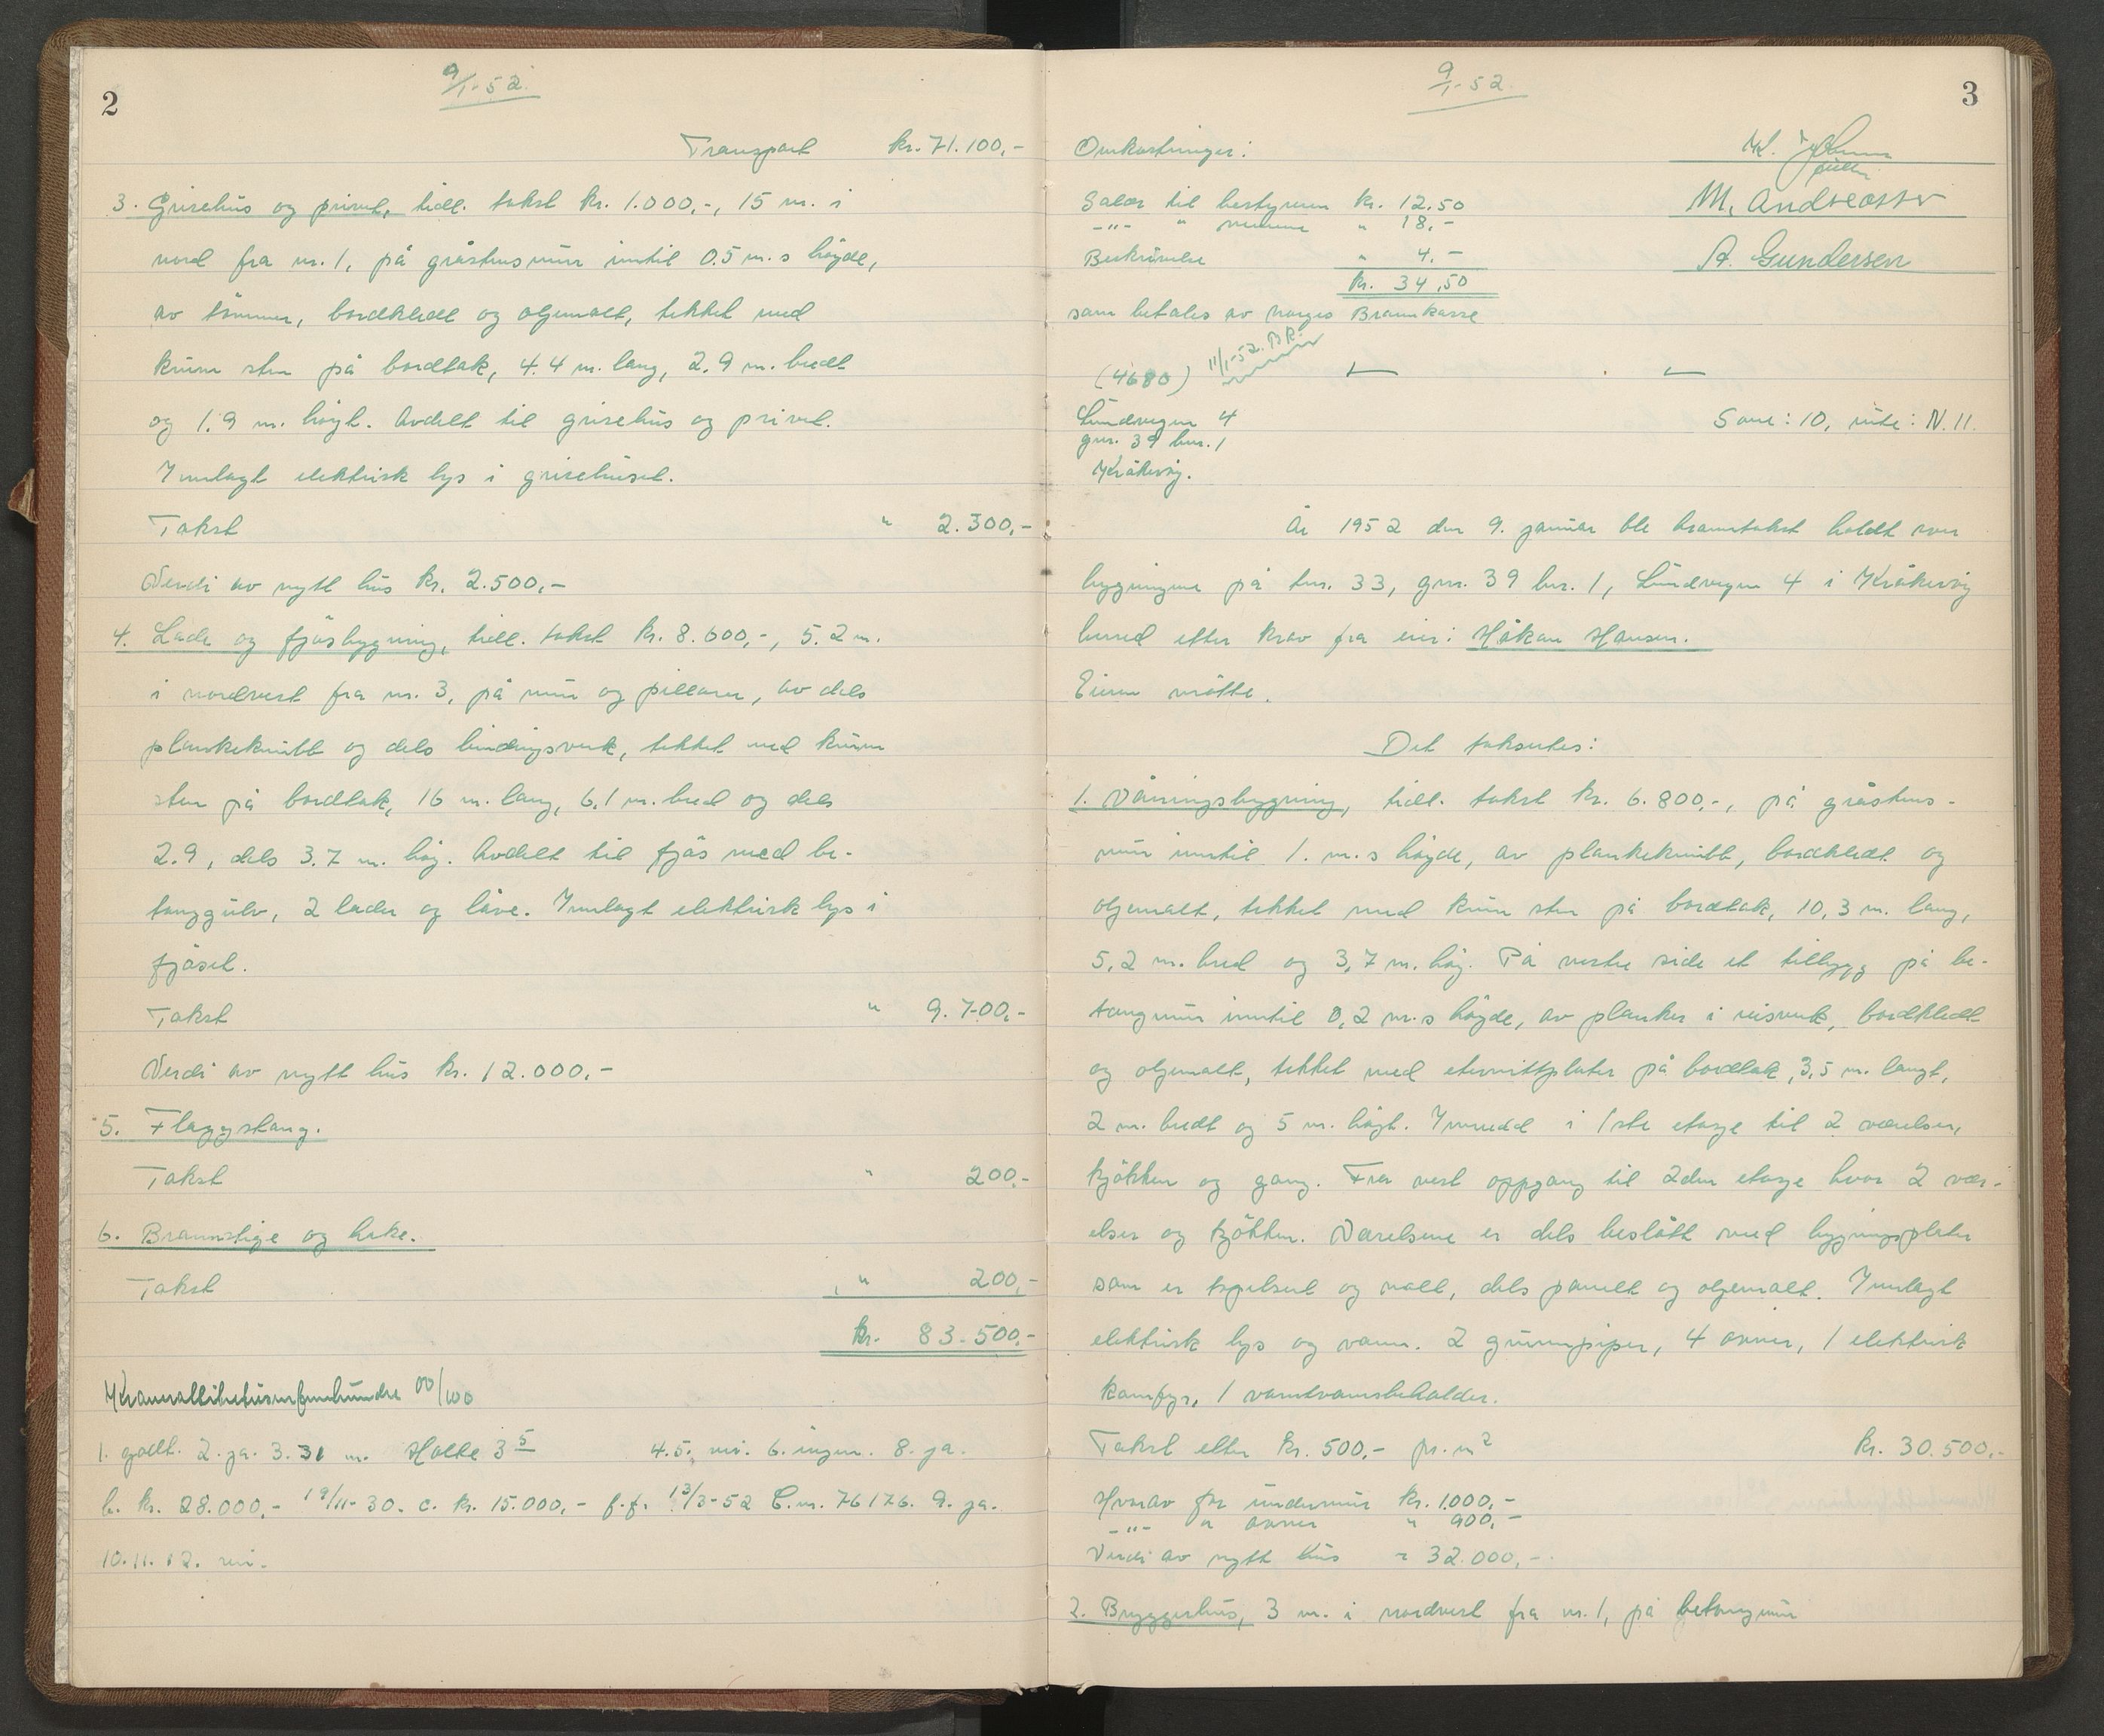 2
9/1-52.
Transport kr. 71.100,-
3. Grisehus og privet, tidl. takst kr. 1.000,-, 15 m. i
nord fra nr. 1, på gråstensmur inntil 0.5 m.s höyde,
av tömmer, bordkledt og oljemalt, tekket med
krum sten på bordtak, 4.4 m. lang, 2.9 m. bredt
og 1.9 m. höyt. Avdelt til grisehus og privet.
Innlagt elektrisk lys i grisehuset.
Takst " 2.300,-
Verdi av nytt hus kr. 2.500,-
4. Lade og fjösbygning, tidl. takst kr. 8.600,-, 5.2 m.
i nordvest fra nr. 3, på mur og pillarer, av dels
plankeknubb og dels bindingsverk, tekket med krum
sten på bordtak, 16 m. lang, 6.1 m. bred og dels
2.9, dels 3.7 m. höy. Avdelt til fjös med be-
tonggulv, 2 lader og låve. Innlagt elektrisk lys i
fjöset.
Takst " 9.700,-
Verdi av nytt hus kr. 12.000,-
5. Flaggstang.
Takst " 200,-
6. Brannstige og hake.
Takst " 200,-
kr. 83.500,-
Kroneråttitretusenfemhundre 00/100
1. godt. 2. ja. 3. 31 m. Holte 3 5 4.5. nei. 6. ingen. 8. ja.
b. kr. 28.000,- 19/11-30. c. kr. 15.000,- f.f. 13/3-52 C.nr. 76176. 9. ja.
10.11.12. nei.
3
9/1-52.
Omkostninger:
Salær til bestyreren kr. 12,50
-"- " mennene " 18,-
Beskrivelse " 4,-
kr. 34,50
som betales av Norges Brannkasse
M. Andreassen
A. Gundersen
(4680) 11/1-52. BK.
Lundvegen 4
gnr. 39 bnr. 1
Kråkevig.
Sone: 10, rute: N.11.
År 1952 den 9. januar ble branntakst holdt over
bygningene på bnr. 33, gnr. 39 bnr. 1, Lundvegen 4 i Kråkevig
herred etter krav fra eier: Håkon Hansen.
Eieren mötte.
Det takseres:
1. Våningsbygning, tidl. takst kr. 6.800,-, på gråstens-
mur inntil 1. m.s höyde, av plankeknubb, bordkledt og
oljemalt, tekket med krum sten på bordtak, 10,3 m. lang,
5,2 m. bred og 3,7 m. höy. På vestre side et tilbygg på be-
tongmur inntil 0,2 m.s höyde, av planker i reisverk, bordkledt
og oljemalt, tekket med eternittplater på bordtak, 3,5 m. langt,
2 m. bredt og 5 m. höyt. Innredd i 1ste etasje til 2 værelser,
kjökken og gang. Fra vest oppgang til 2den etasje hvor 2 vær-
elser og kjökken. Værelsene er dels beslått med bygningsplater
som er tapetsert og malt, dels panelt og oljemalt. Innlagt
elektrisk lys og vann. 2 grunnpiper, 4 ovner, 1 elektrisk
komfyr, 1 varmtvannsbeholder.
Takst etter kr. 500,- pr. m² kr. 30.500,-
Hvorav for undermur kr. 1.000,-
-"- " ovner " 900,-
Verdi av nytt hus " 32.000,-
2. Bryggerhus, 3 m. i nordvest fra nr. 1, på betongmur